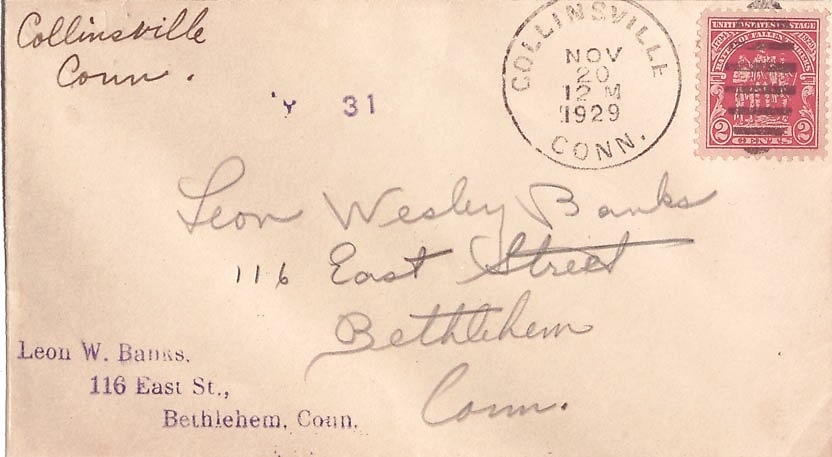 Collinsville
Conn.
Y 31
COLLINSVILLE
NOV
20
12 M
1929
CONN.
UNITED STATES POSTAGE
BATTLE OF FALLEN TIMBERS
2 CENTS 2
Leon Wesley Banks
116 East Street
Bethlehem
Conn.
Leon W. Banks.
116 East St.,
Bethlehem, Conn.